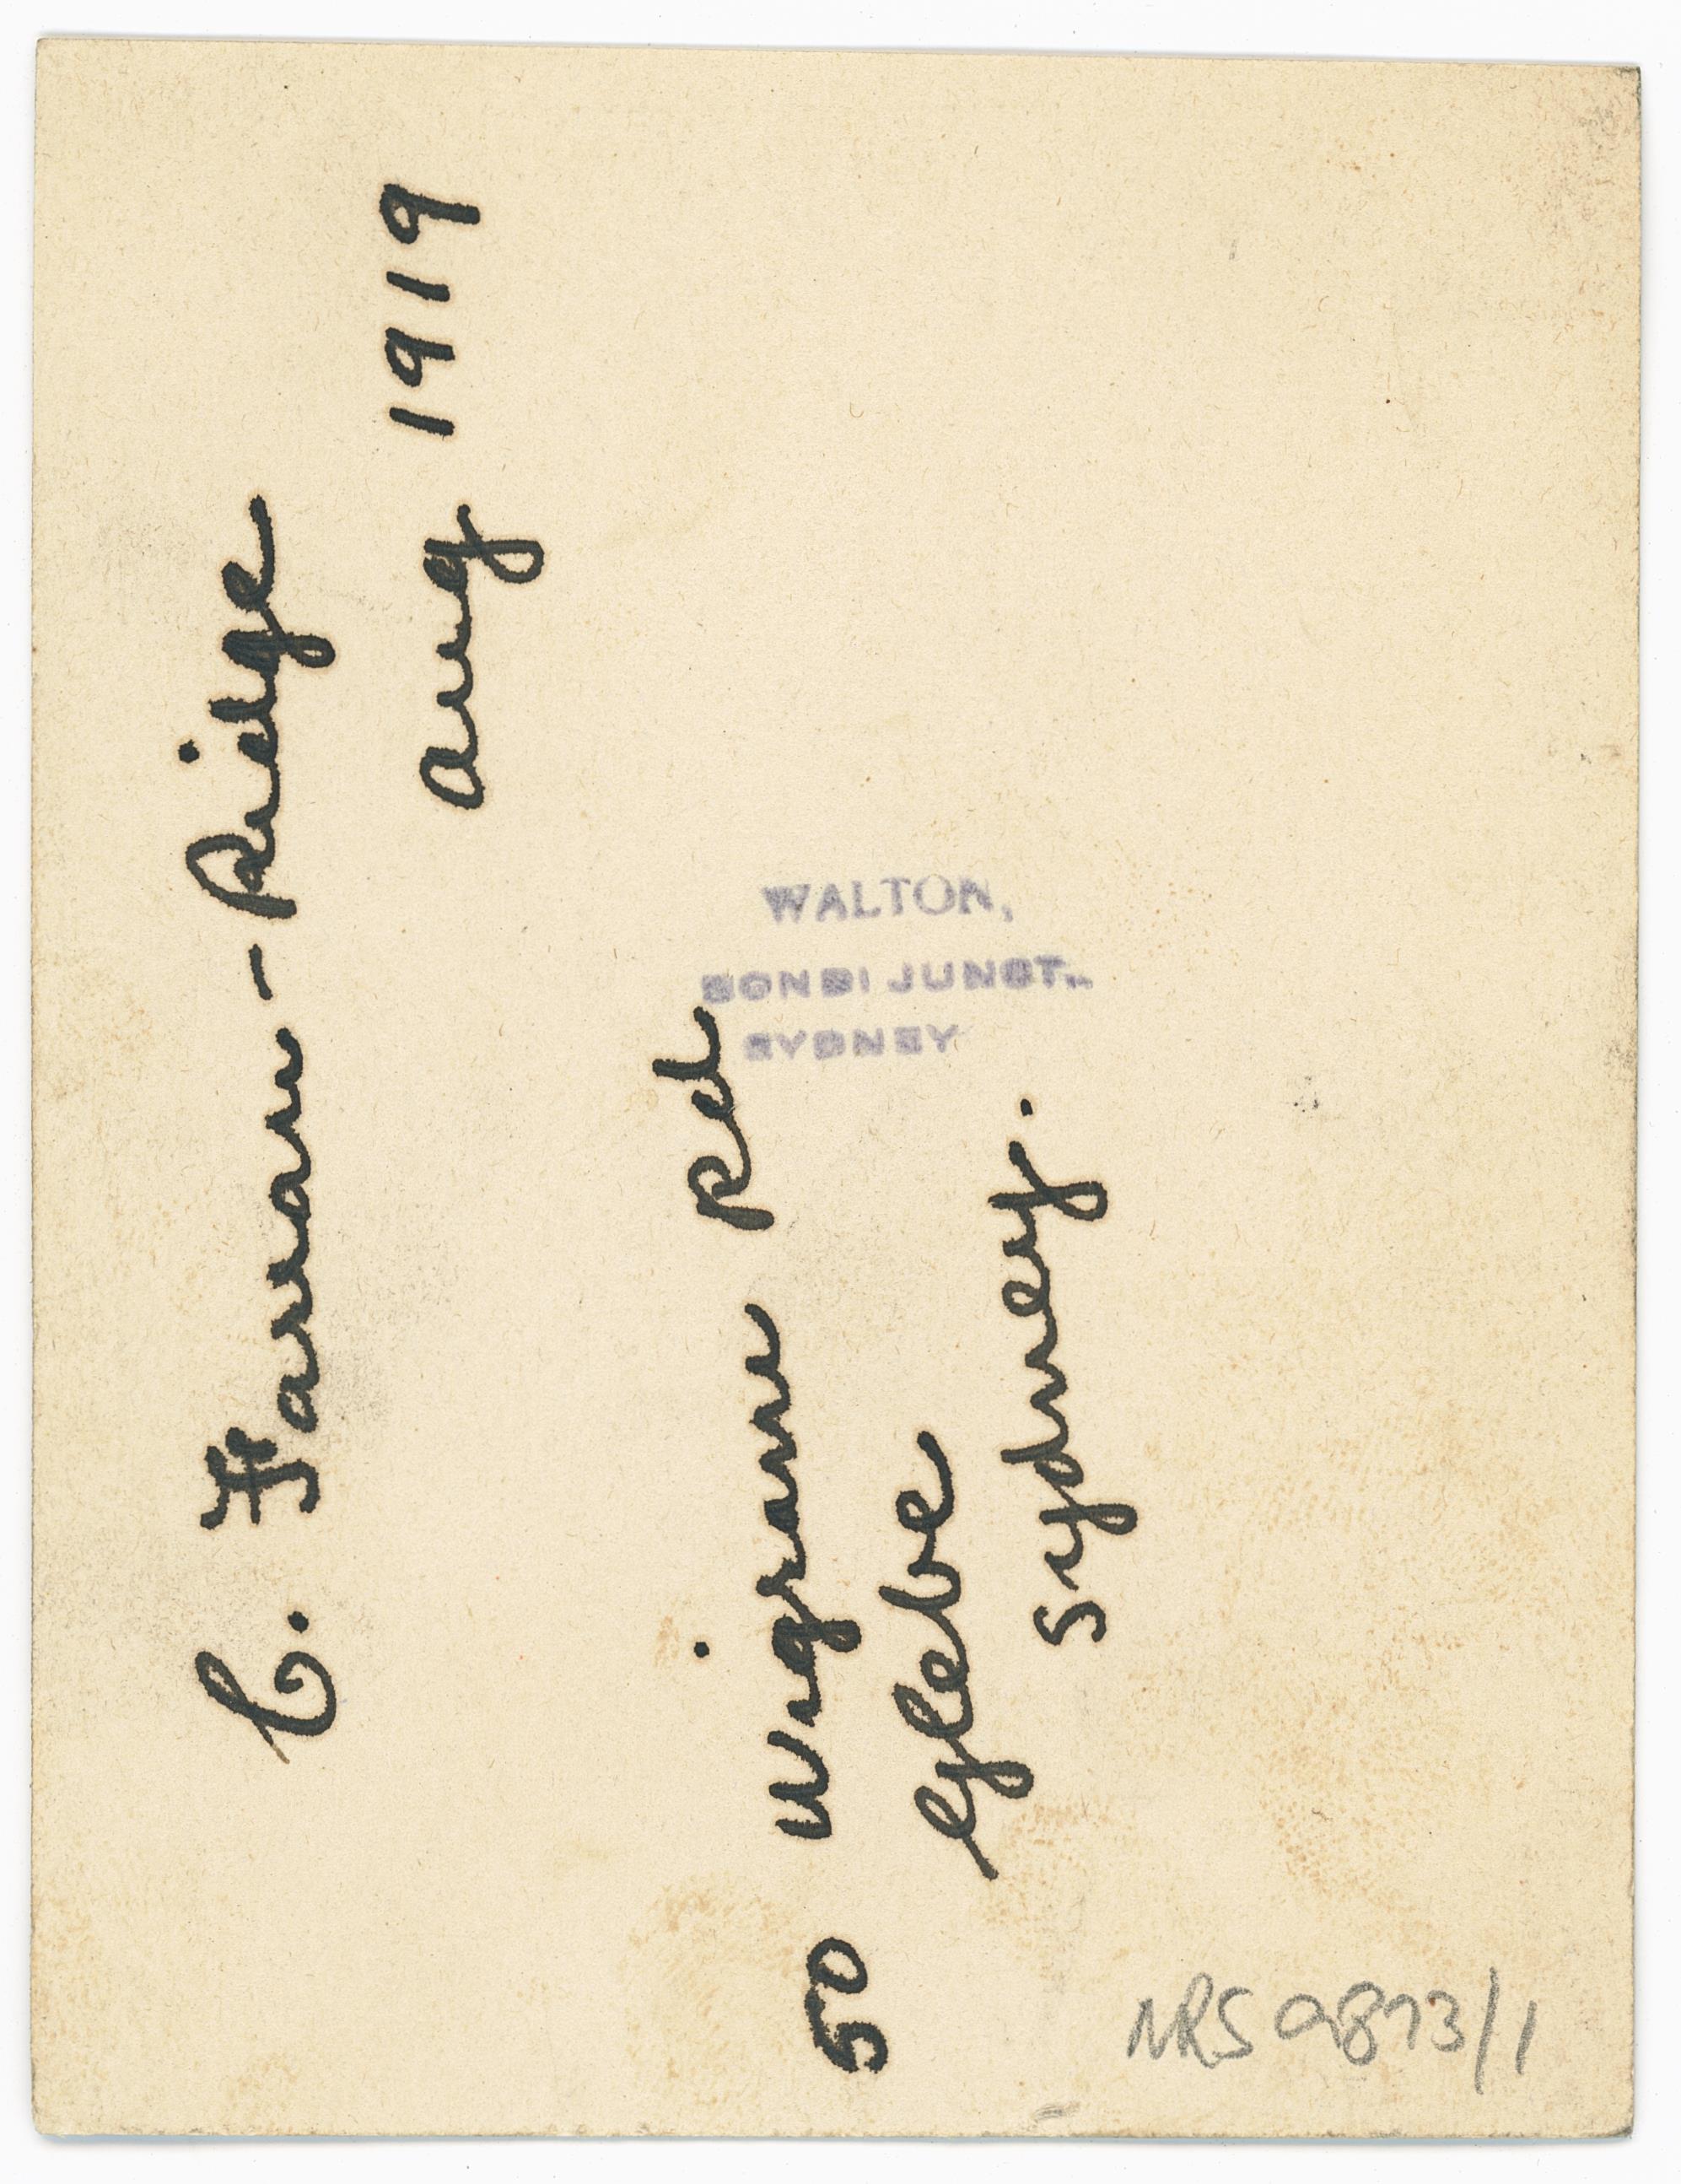 C. Farran-Ridge
Aug 1919
50 Wigram Rd
Glebe
Sydney.
WALTON,
BONDI JUNCT.,
SYDNEY
NRS 9873/1